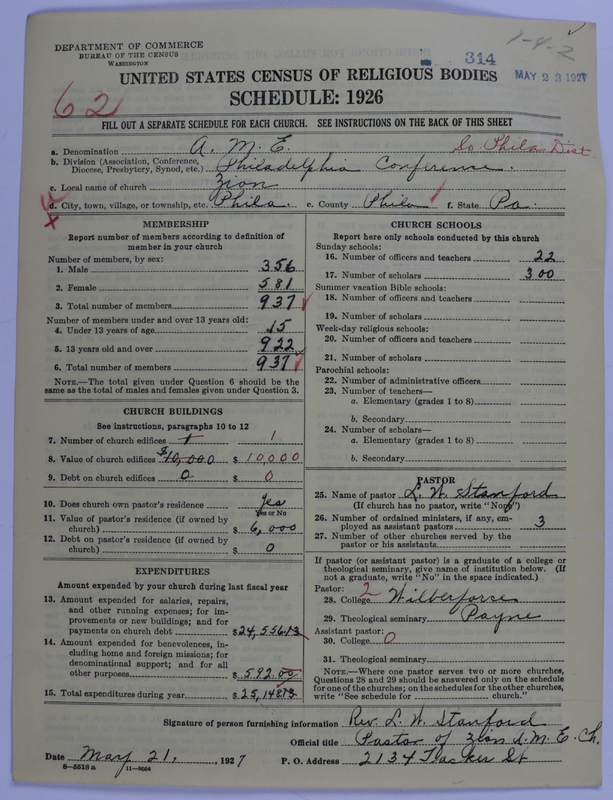 1-4-2
DEPARTMENT OF COMMERCE
BUREAU OF THE CENSUS
WASHINGTON
314
MAY 23 1927
UNITED STATES CENSUS OF RELIGIOUS BODIES
62
SCHEDULE: 1926
FILL OUT A SEPARATE SCHEDULE FOR EACH CHURCH. SEE INSTRUCTIONS ON THE BACK OF THIS SHEET
a. Denomination A. M. E. So. Phila Dist.
b. Division (Association, Conference, Diocese, Presbytery, Synod, etc.) Philadelphia Conference.
c. Local name of church Zion
d. City, town, village, or township, etc. Phila. e. County Phila f. State Pa.
MEMBERSHIP
Report number of members according to definition of
member in your church
Number of members, by sex:
1. Male 356
2. Female 581
3. Total number of members 937
Number of members under and over 13 years old:
4. Under 13 years of age 15
5. 13 years old and over 922
6. Total number of members 937
NOTE.—The total given under Question 6 should be the
same as the total of males and females given under Question 3.
CHURCH BUILDINGS
See instructions, paragraphs 10 to 12
7. Number of church edifices 1 1
8. Value of church edifices $10,000 $ 10,000
9. Debt on church edifices 0 $ 0
10. Does church own pastor's residence Yes
Yes or No
11. Value of pastor's residence (if owned by
church) $ 6,000
12. Debt on pastor's residence (if owned by
church) $ 0
EXPENDITURES
Amount expended by your church during last fiscal year
13. Amount expended for salaries, repairs,
and other running expenses; for im-
provements or new buildings; and for
payments on church debt $24,556.13
14. Amount expended for benevolences, in-
cluding home and foreign missions; for
denominational support; and for all
other purposes $ 592.00
15. Total expenditures during year $ 25,148.13
CHURCH SCHOOLS
Report here only schools conducted by this church
Sunday schools:
16. Number of officers and teachers 22
17. Number of scholars 300
Summer vacation Bible schools:
18. Number of officers and teachers
19. Number of scholars
Week-day religious schools:
20. Number of officers and teachers
21. Number of scholars
Parochial schools:
22. Number of administrative officers
23. Number of teachers—
a. Elementary (grades 1 to 8)
b. Secondary
24. Number of scholars—
a. Elementary (grades 1 to 8)
b. Secondary
PASTOR
25. Name of pastor L. W. Stanford
(If church has no pastor, write "None")
26. Number of ordained ministers, if any, em-
ployed as assistant pastors 3
27. Number of other churches served by the
pastor or his assistants
If pastor (or assistant pastor) is a graduate of a college or
theological seminary, give name of institution below. (If
not a graduate, write "No" in the space indicated.)
Pastor: 2
28. College Wilberforce
29. Theological seminary Payne
Assistant pastor:
30. College 0
31. Theological seminary
NOTE.—Where one pastor serves two or more churches,
Questions 28 and 29 should be answered only on the schedule
for one of the churches; on the schedules for the other churches,
write "See schedule for church."
Signature of person furnishing information Rev. L. W. Stanford
Official title Pastor of Zion A. M. E. Ch.
Date May 21, 1927 P. O. Address 2134 St
8—5518 a 11—9694